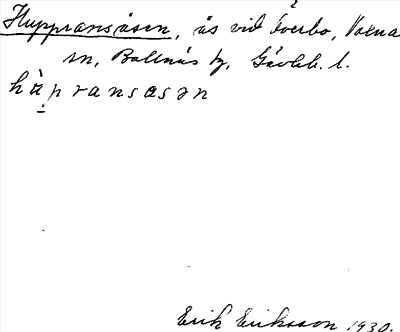 Huppransåsen, ås vid Överbo, Voxna
sn, Bollnäs tg, Gävleb. l.
hùpransasən
Erik Eriksson 1930.